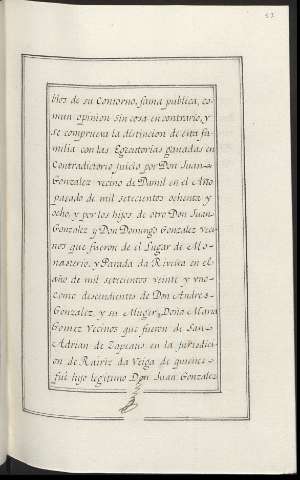 blos de su Contorno, fama publica, co-
mun opinion sin cosa en contrario, y
se comprueva la distincion de esta fa-
milia con las Egecutorias ganadas en
Contradictorio juicio por Don Juan
Gonzalez vecino de Damil en el Año
pasado de mil setecientos ochenta y
ocho, y por los hijos de otro Don Juan
Gonzalez y Don Domingo Gonzalez veci-
nos que fueron de el Lugar de Mo-
nasterio, y Parada da Riveira en el
año de mil setecientos veinte y uno
como descendientes de Don Andres
Gonzalez, y su Muger Doña Maria
Gomez Vecinos que fueron de San
Adrian de Zapeaus en la jurisdici-
on de Rairiz da Veiga de quienes
fué hijo legitimo Don Juan Gonzalez